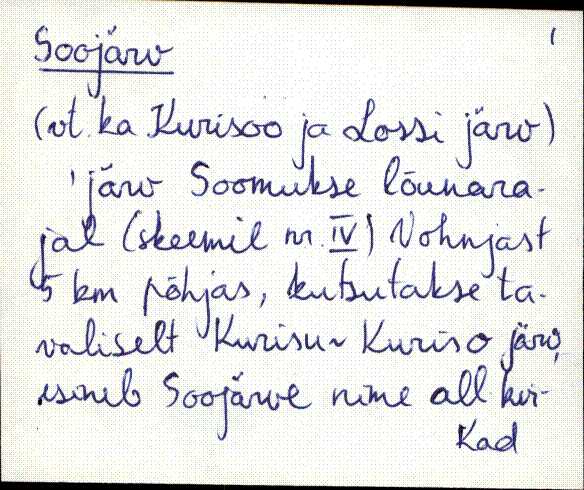 Soojärv
(vt. ka Kurisoo ja Lossi järv)
järv Soomukse lõunara-
jal (skeemil nr. IV) Vohnjast
5 km põhjas, kutsutakse ta-
valiselt Kurisu~Kuriso järv,
esineb Soojärve nime all
Kad